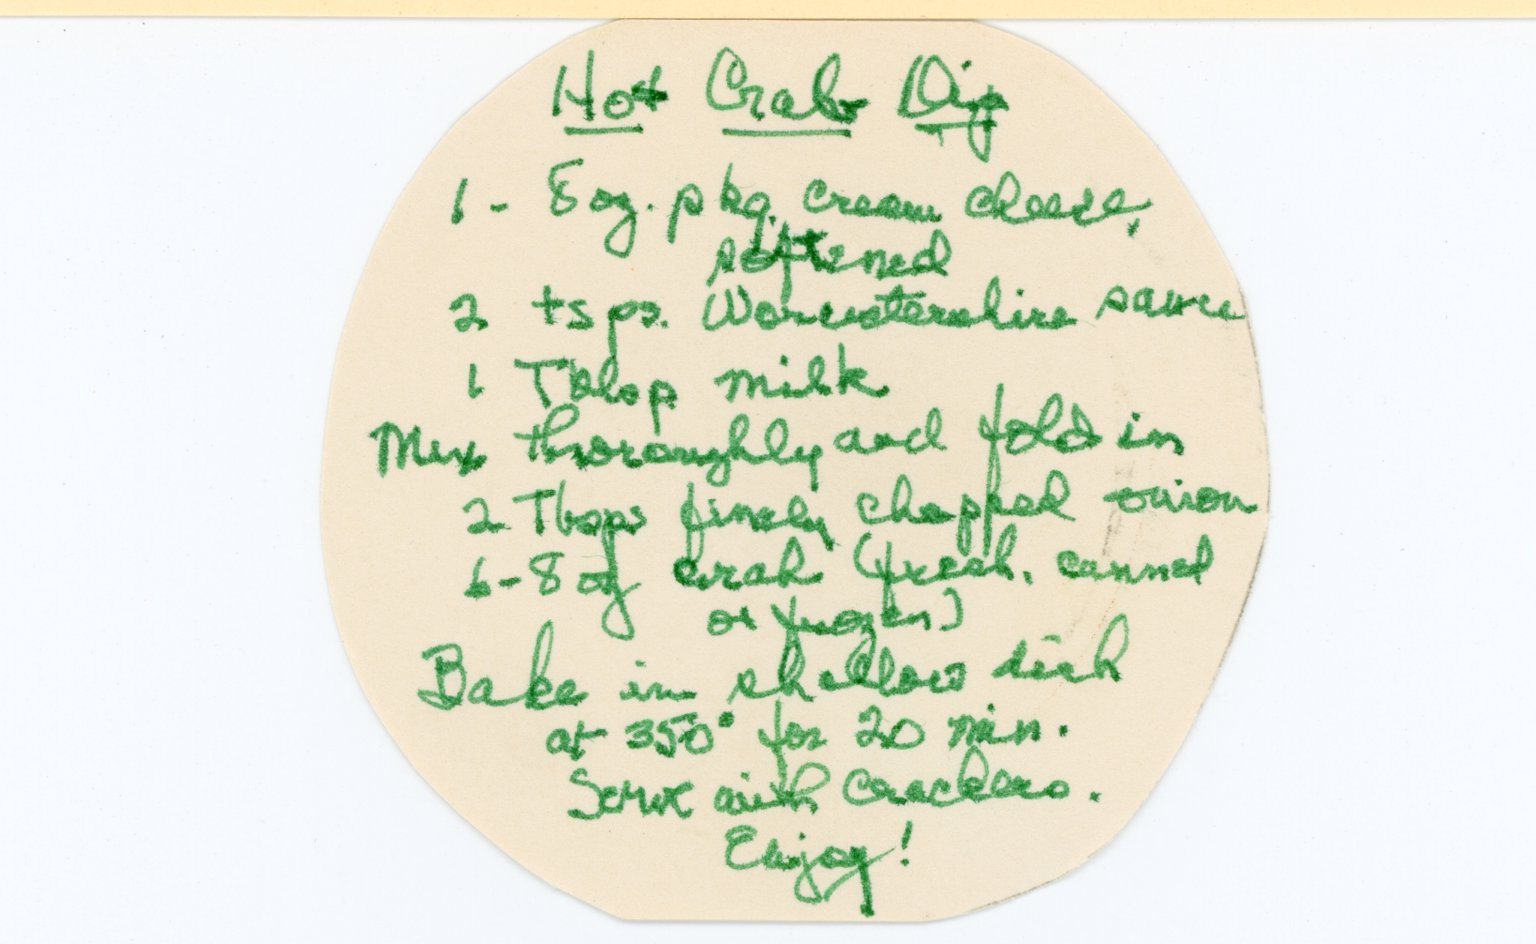 Hot Crab Dip
1 - 8 oz. pkg. cream cheese,
softened
2 tsps. Worcestershire sauce
1 Tblsp milk
Mix thoroughly and fold in
2 Tbsps finely chopped onion
6-8 oz crab (fresh, canned
or frozen)
Bake in shallow dish
at 350° for 20 min.
Serve with crackers.
Enjoy!